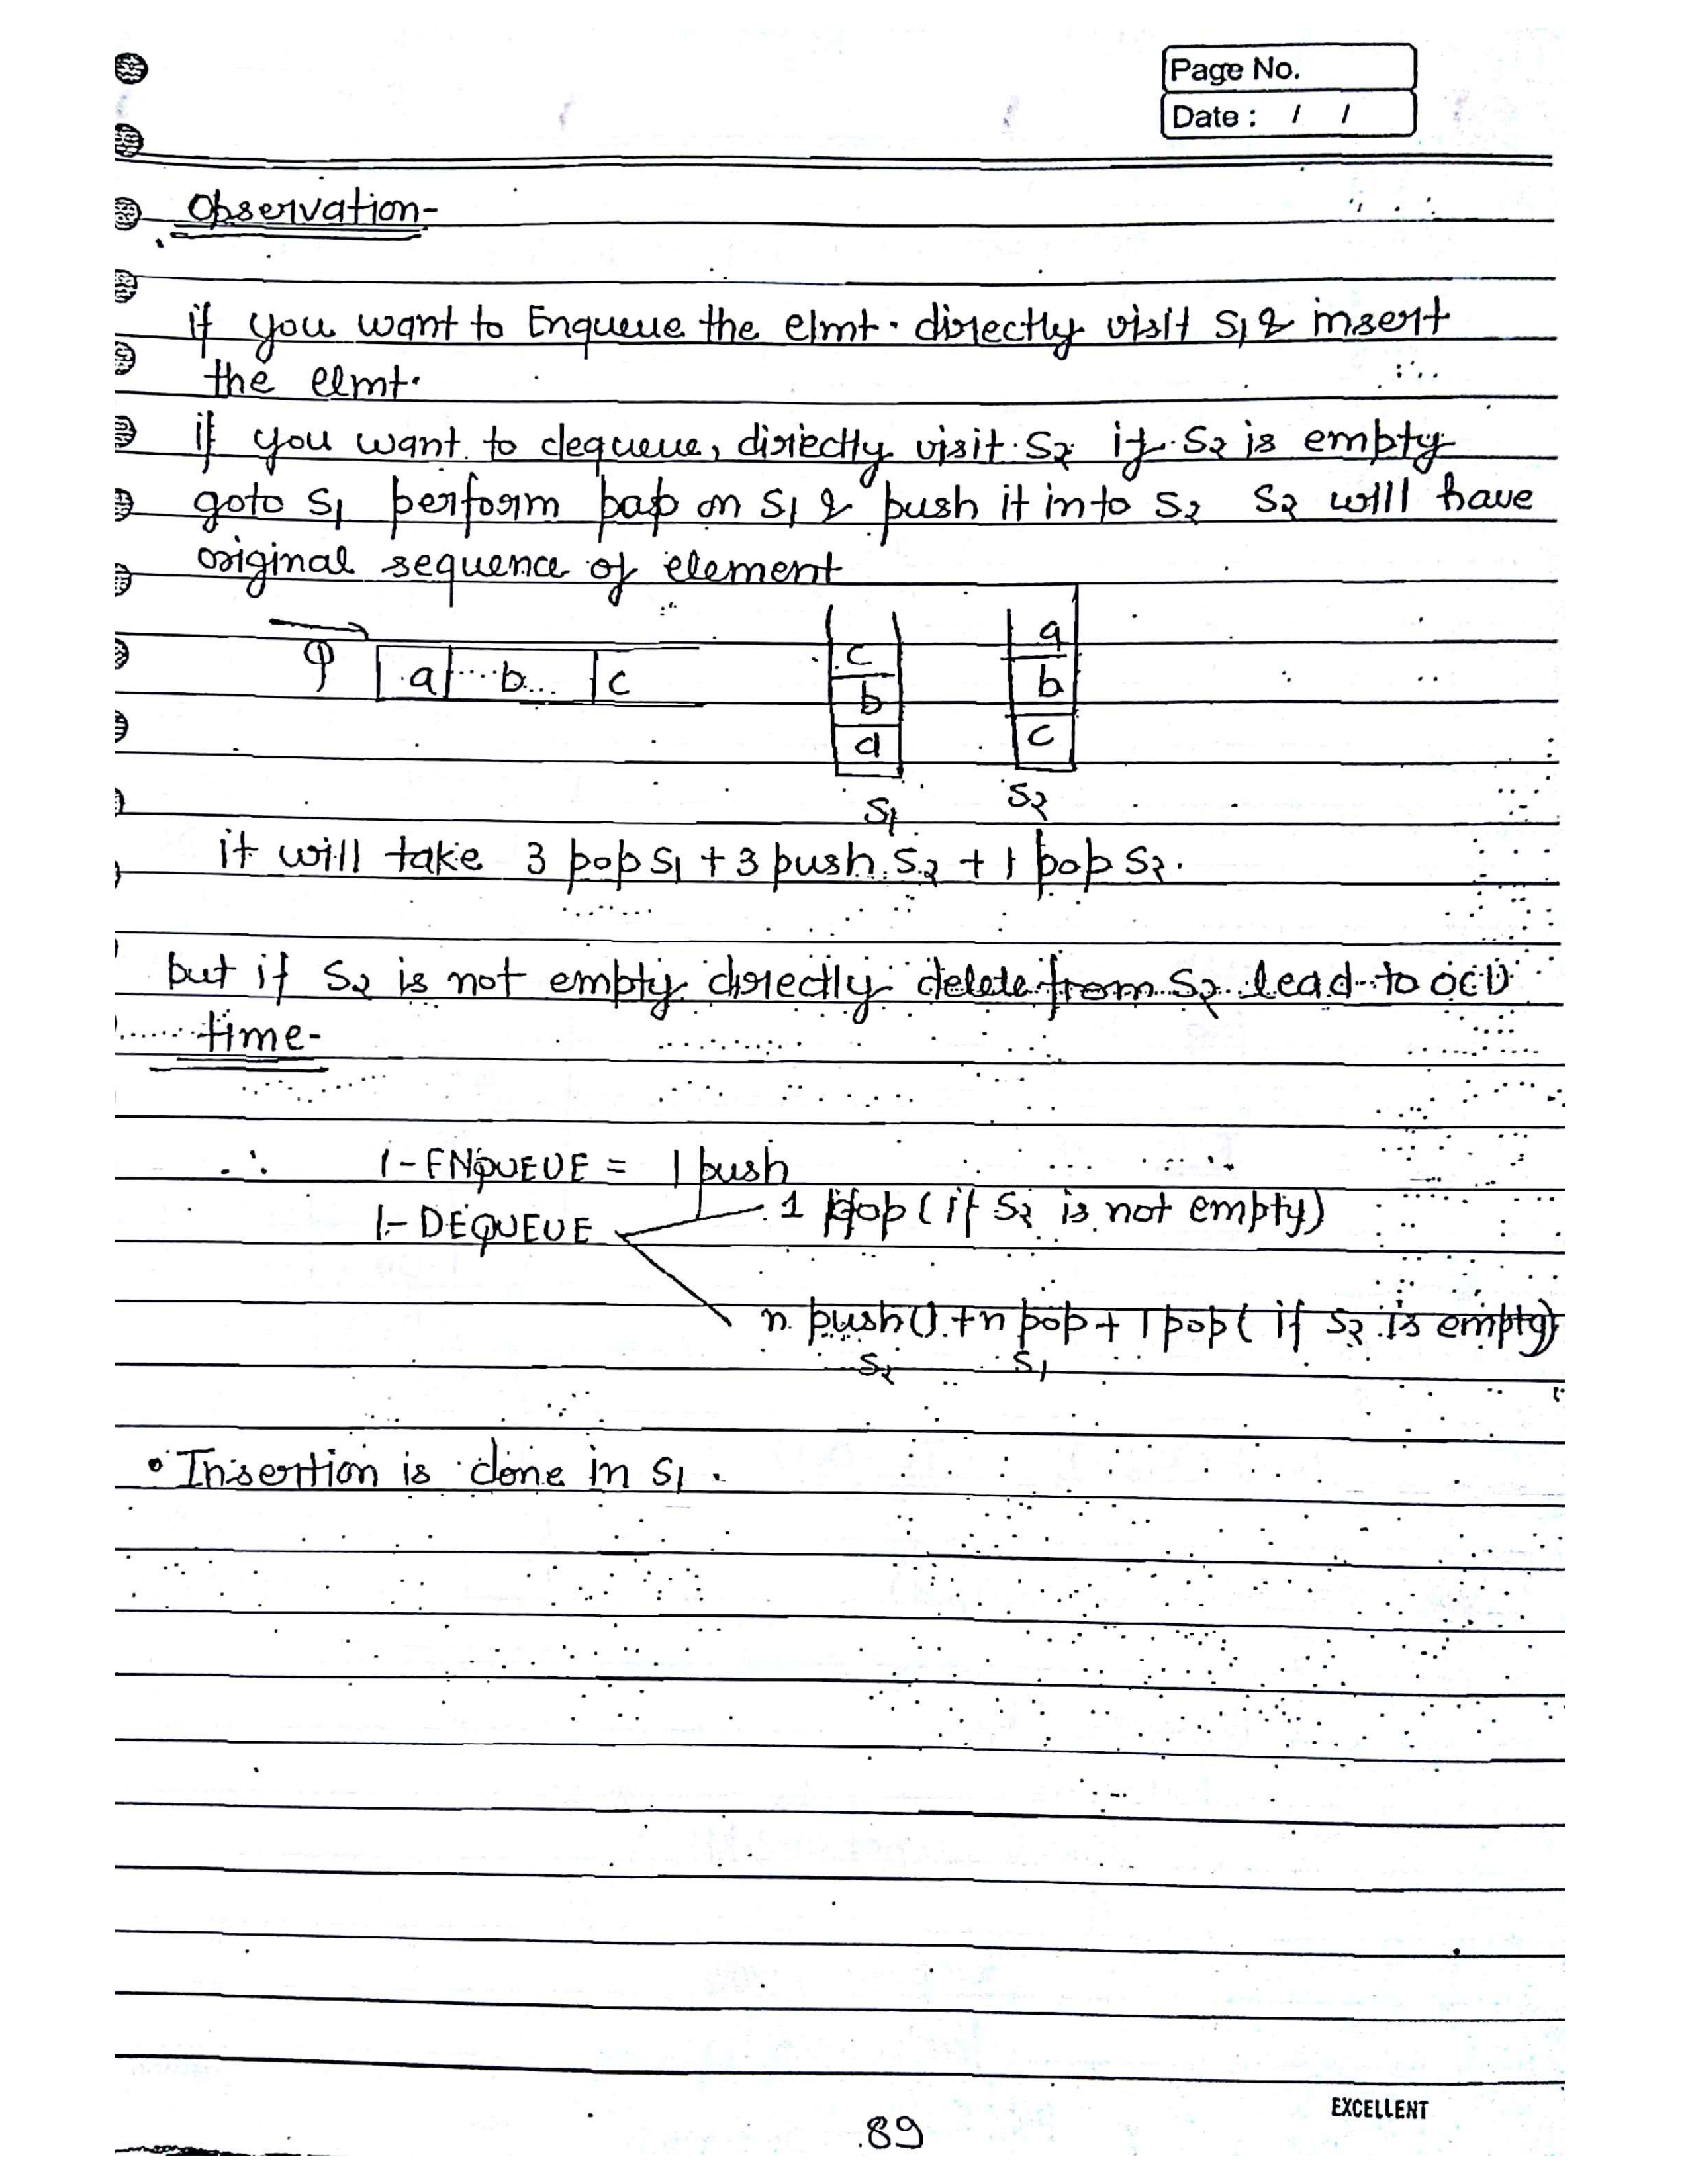 Page No.
Date : / /
Observation-
if you want to Enqueue the elmt. directly visit S1 & insert
the elmt.
if you want to dequeue, directly visit S2 if S2 is empty
goto S1 perform pop on S1 & push it into S2 S2 will have
original sequence of element
Q a b c
c a
b b
a c
S1 S2
it will take 3 pop S1 + 3 push S2 + 1 pop S2.
but if S2 is not empty directly delete from S2 lead to O(1)
time-
∴ 1-ENQUEUE = 1 push
1-DEQUEUE 1 pop (if S2 is not empty)
n push() + n pop + 1 pop ( if S2 is empty)
S2 S1
• Insertion is done in S1.
EXCELLENT
89